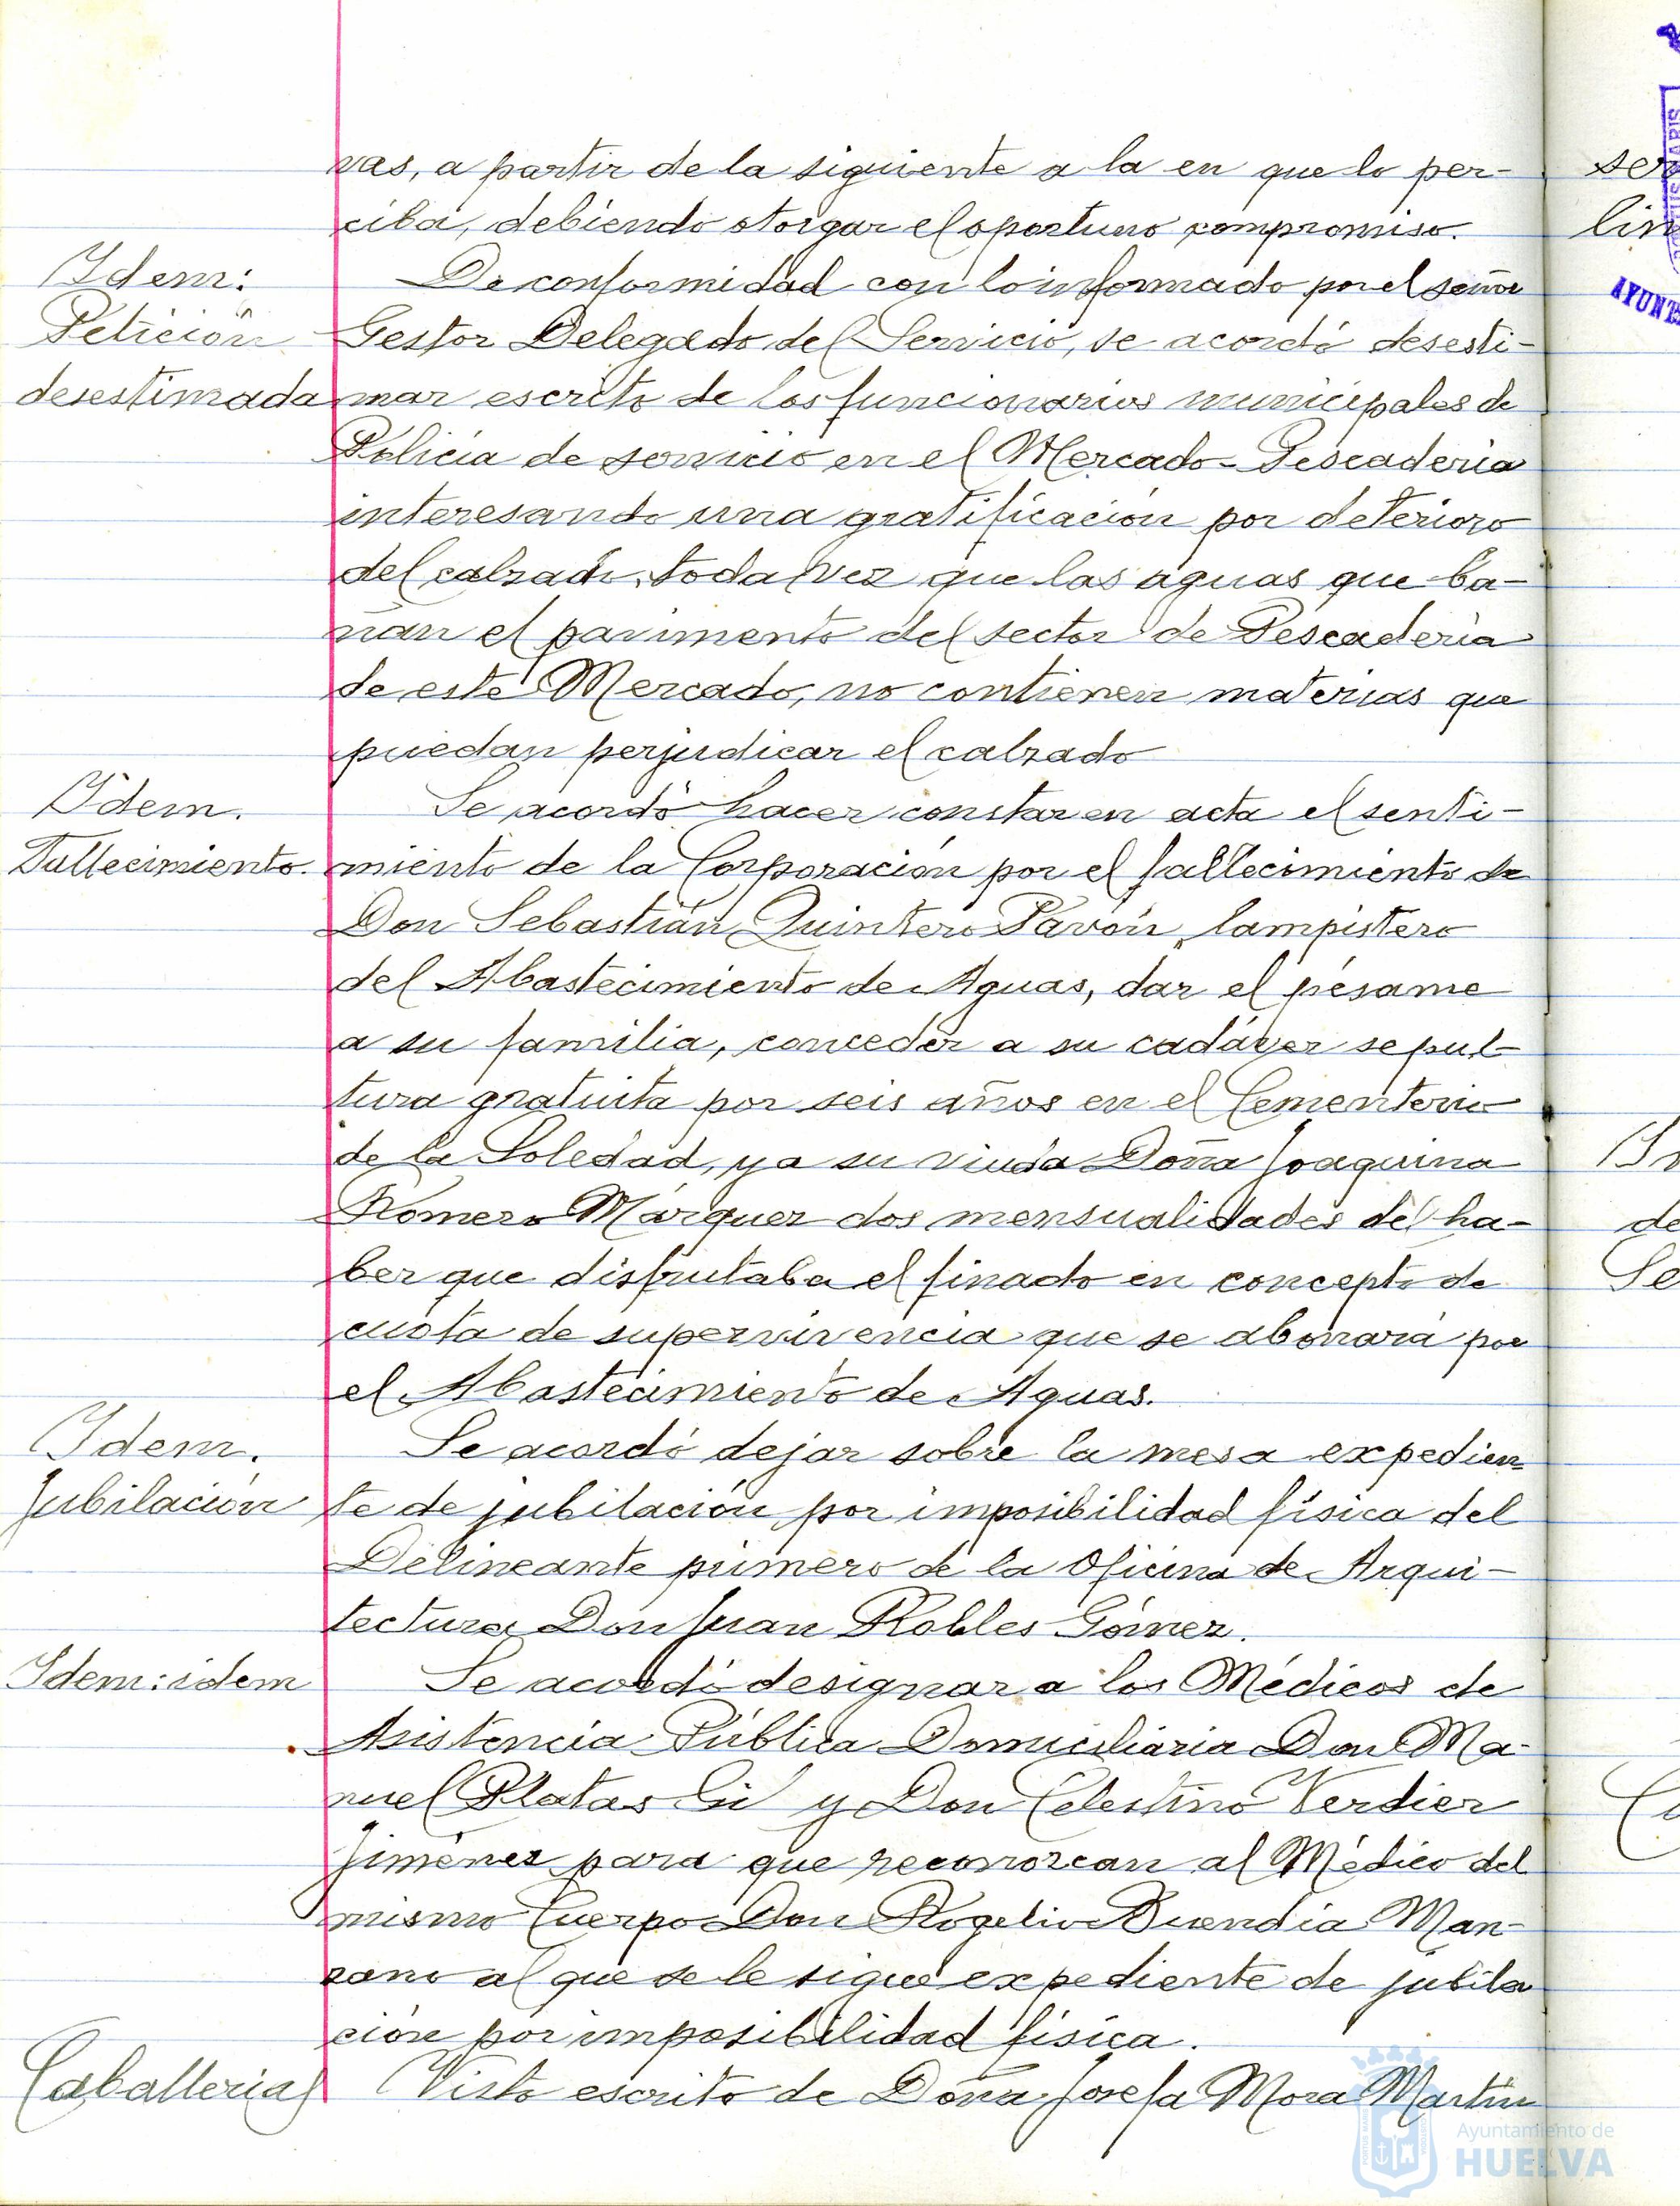 vas, a partir de la siguiente a la en que lo per-
ciba, debiendo otorgar el oportuno compromiso.
Idem:
Petición
desestimada
De conformidad con lo informado por el señor
Gestor Delegado del Servicio, se acordó desesti-
mar escrito de los funcionarios municipales de
Policía de servicio en el Mercado-Pescadería
interesando una gratificación por deterioro
del calzado, toda vez que las aguas que ba-
ñan el pavimento del sector de Pescadería
de este Mercado, no contienen materias que
puedan perjudicar el calzado
Idem.
Fallecimiento.
Se acordó hacer constar en acta el senti-
miento de la Corporación por el fallecimiento de
Don Sebastián Quintero Pavón, lampistero
del Abastecimiento de Aguas, dar el pésame
a su familia, conceder a su cadáver sepul-
tura gratuita por seis años en el Cementerio
de la Soledad, y a su viuda Doña Joaquina
Romero Márquez dos mensualidades del ha-
ber que disfrutaba el finado en concepto de
cuota de supervivencia que se abonará por
el Abastecimiento de Aguas.
Idem.
Jubilación
Se acordó dejar sobre la mesa expedien-
te de jubilación por imposibilidad física del
Delineante primero de la Oficina de Arqui-
tectura Don Juan Robles Gómez.
Idem: idem
Se acordó designar a los Médicos de
Asistencia Pública Domiciliaria Don Ma-
nuel Platas Gil y Don Celestino Verdier
Jiménez para que reconozcan al Médico del
mismo Cuerpo Don Rogelio Buendía Man-
zano al que se le sigue expediente de jubila
ción por imposibilidad física.
Caballerías
Visto escrito de Doña Josefa Mora Martín
Ayuntamiento de
HUELVA